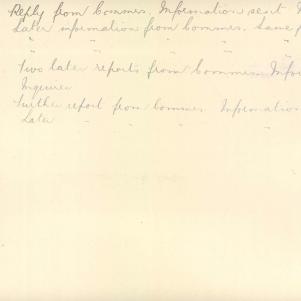 Reply from Commr. Information sent
Later information from Commr. Same
" " " " "
" " " " "
Two later reports from Commr. Infor
Inquirer
Further report from Commr. Information
Later " " " "